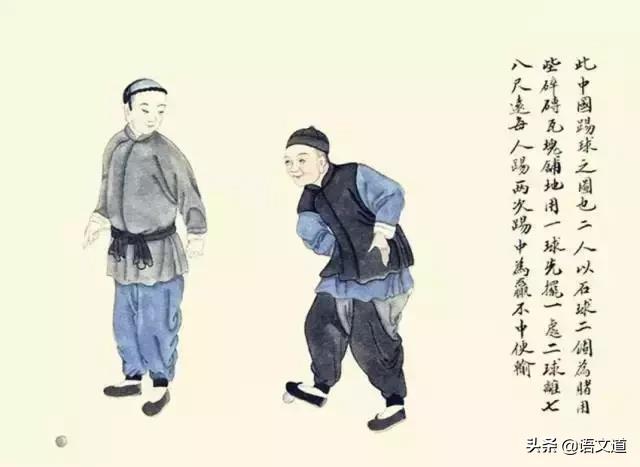 此中國踢球之圖也二人以石球二個為賭用
些碎磚瓦塊鋪地用一球先擺一處二球離七
八尺遠每人踢兩次踢中為贏不中便輸
头条 @语文道